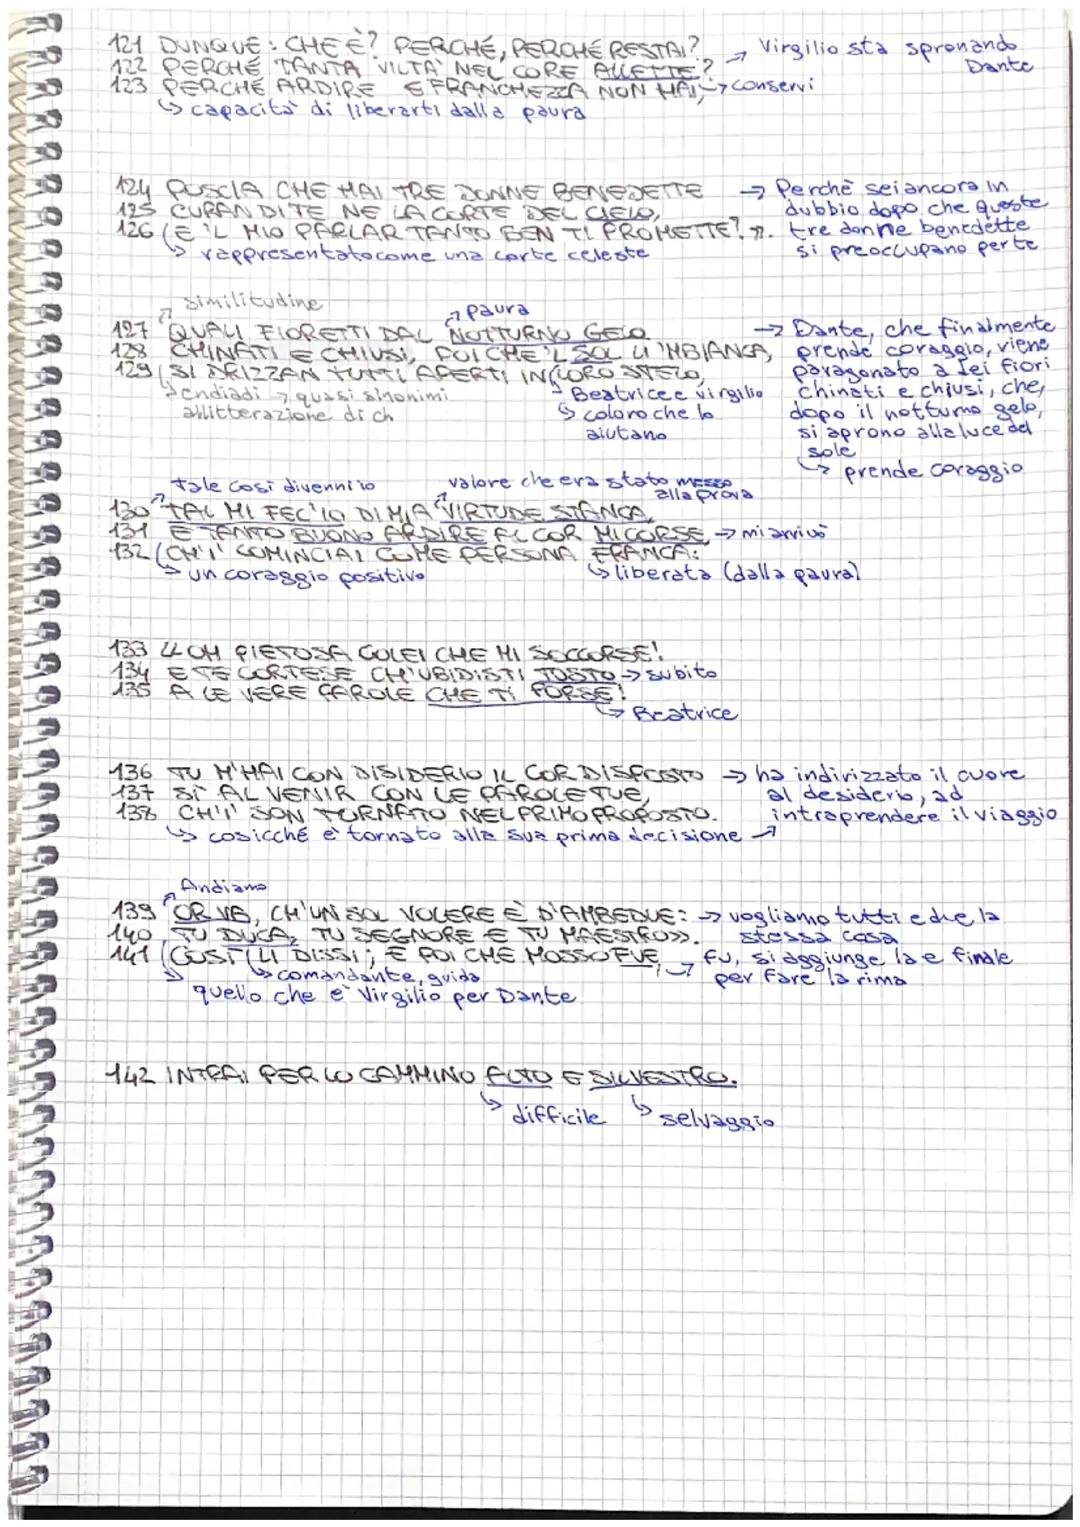 121 DUNQUE: CHE È? PERCHÉ, PERCHÉ RESTAI?
→ Virgilio sta spronando Dante
122 PERCHÉ TANTA VILTÀ NEL CORE ALLETTE?
→ conservi
123 PERCHÉ ARDIRE E FRANCHEZZA NON HAI,
↳ capacità di liberarti dalla paura
124 POSCIA CHE HAI TRE DONNE BENEDETTE
125 CURAN DI TE NE LA CORTE DEL CIELO,
126 E 'L MIO PARLAR TANTO BEN TI PROMETTE?».
→ Perchè sei ancora in
dubbio dopo che queste
tre donne benedette
si preoccupano per te
↳ rappresentato come una corte celeste
similitudine
→ paura
127 QUALI FIORETTI DAL NOTTURNO GELO
128 CHINATI E CHIUSI, POI CHE 'L SOL LI 'MBIANCA,
129 SI DRIZZAN TUTTI APERTI IN LORO STELO,
→ Dante, che finalmente
prende coraggio, viene
paragonato a dei fiori
chinati e chiusi, che,
dopo il notturno gelo,
si aprono alla luce del
sole
↳ prende coraggio
↳ endiadi → quasi sinonimi
allitterazione di ch
↳ Beatrice e Virgilio
↳ coloro che lo
aiutano
tale così divenni io
valore che era stato messo
alla prova
130 TAL MI FEC'IO DI MIA VIRTUDE STANCA,
131 E TANTO BUONO ARDIRE AL COR MI CORSE, → mi arrivò
132 CH'I' COMINCIAI COME PERSONA FRANCA:
↳ un coraggio positivo
↳ liberata (dalla paura)
133 «OH PIETOSA COLEI CHE MI SOCCORSE!
134 E TE CORTESE CH'UBIDISTI TOSTO → subito
135 A LE VERE PAROLE CHE TI PORSE!
↳ Beatrice
136 TU M'HAI CON DISIDERIO IL COR DISPOSTO
137 SÌ AL VENIR CON LE PAROLE TUE,
138 CH'I' SON TORNATO NEL PRIMO PROPOSTO.
→ ha indirizzato il cuore
al desiderio, ad
intraprendere il viaggio
↳ cosicché è tornato alla sua prima decisione
Andiamo
139 OR VA, CH'UN SOL VOLERE È D'AMBEDUE: → vogliamo tutti e due la
stessa cosa
140 TU DUCA, TU SEGNORE E TU MAESTRO».
141 COSÌ LI DISSI; E POI CHE MOSSO FUE,
→ fu, si aggiunge la e finale
per fare la rima
↳ comandante, guida
quello che è Virgilio per Dante
142 INTRAI PER LO CAMMINO ALTO E SILVESTRO.
↳ difficile
↳ selvaggio